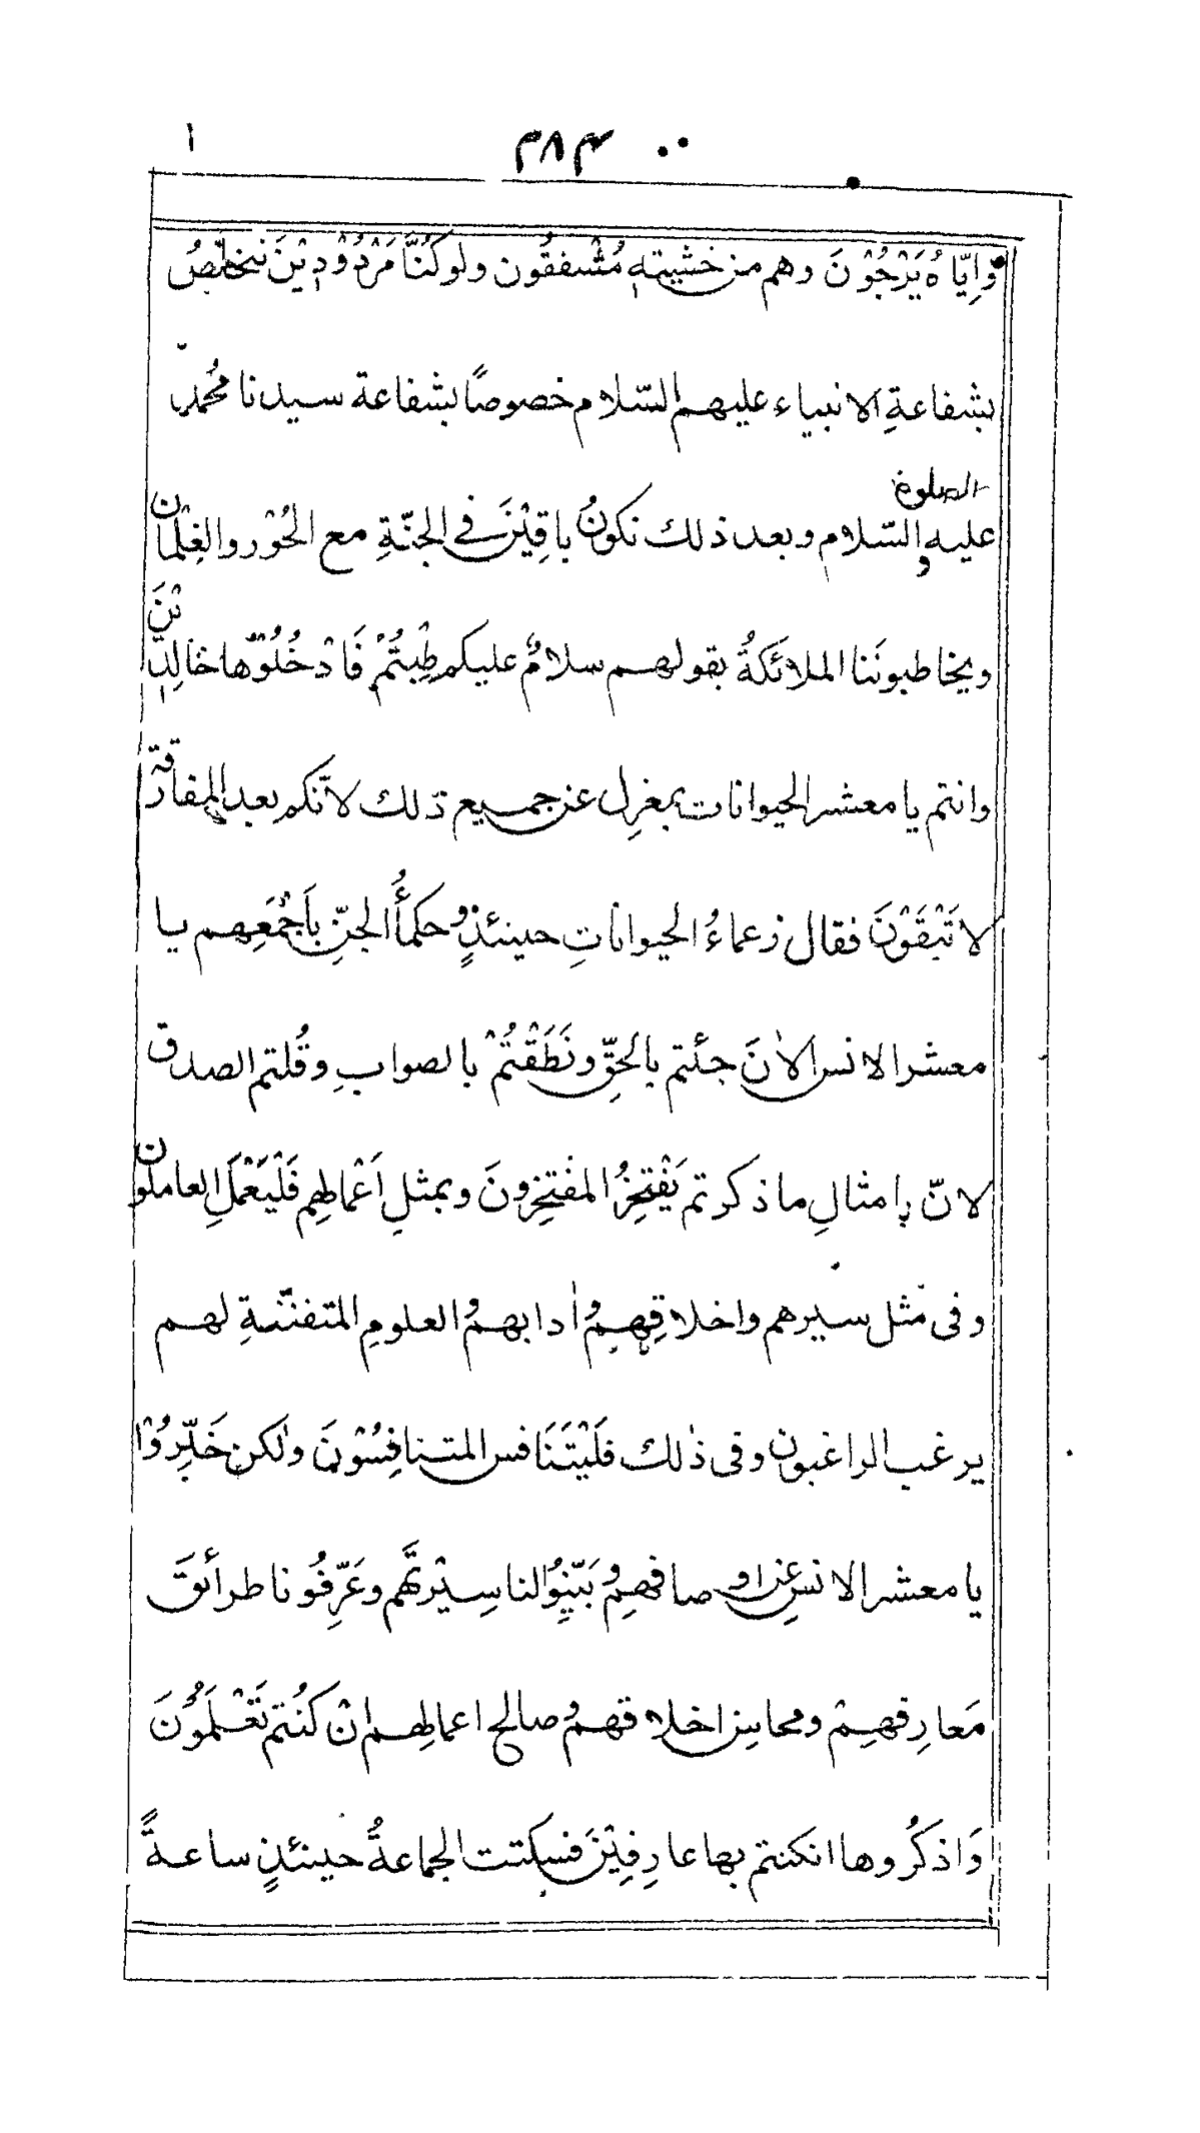 ١ ٣٨٤
وَاِيّاهُ يَرْجُوْنَ وهم من خشيتهٖ مُشْفقُون ولو كُنَّا مَرْدُوْدِيْنَ نتخلّصُ
بشفاعةِ الانبياء عليهم السّلام خصوصًا بشفاعة سيدنا محُمّد
عليه الصلوة والسّلام وبعد ذلك نكونُ باقِيْنَ فى الجنّةِ مع الحُوْر والغِلْمان
ويخاطبونَنا الملائكةُ بقولهم سلامٌ عليكم طِبْتُمْ فَادْخُلُوْها خالِدِيْنَ
وانتم يا معشر الحيوانات بمغزِلٍ عن جميع ذلك لانّكم بعد المفارقة
لا تَبْقَوْنَ فقال زعماءُ الحيواناتِ حينئذٍ وحكمأُ الجنِّ باَجْمَعِهم يا
معشر الانس الاٰنَ جئتم بالحقِّ ونَطَقْتُمْ بالصوابِ وقُلتم الصدق
لانّ بِامثالِ ما ذكرتم يَفْتَخِرُ المفتخِرونَ وبمثلِ اَعْمالهِم فَلْيَعْمَلِ العاملون
وفى مثل سيرهم واخلاقِهِمْ واٰدابهم والعلومِ المتفنّنةِ لهم
يرغب الراغبون وفى ذٰلك فَلْيَتَنَافس المتنافِسُوْنَ ولٰكن خَبِّرُوْا
يا معشر الانسِ عن اوصافهِمْ وبَيِّنُوْا لنا سِيْرتَهُم وعَرِّفُونا طرأئقَ
مَعارِفهِمْ ومحاسِن اخلاقهم وصالح اعمالِهم اِنْ كنُتم تَعْلَمُوْنَ
وَاذكُروها ان كنتم بها عارِفِيْنَ فسكتت الجماعةُ حينئذٍ ساعةً